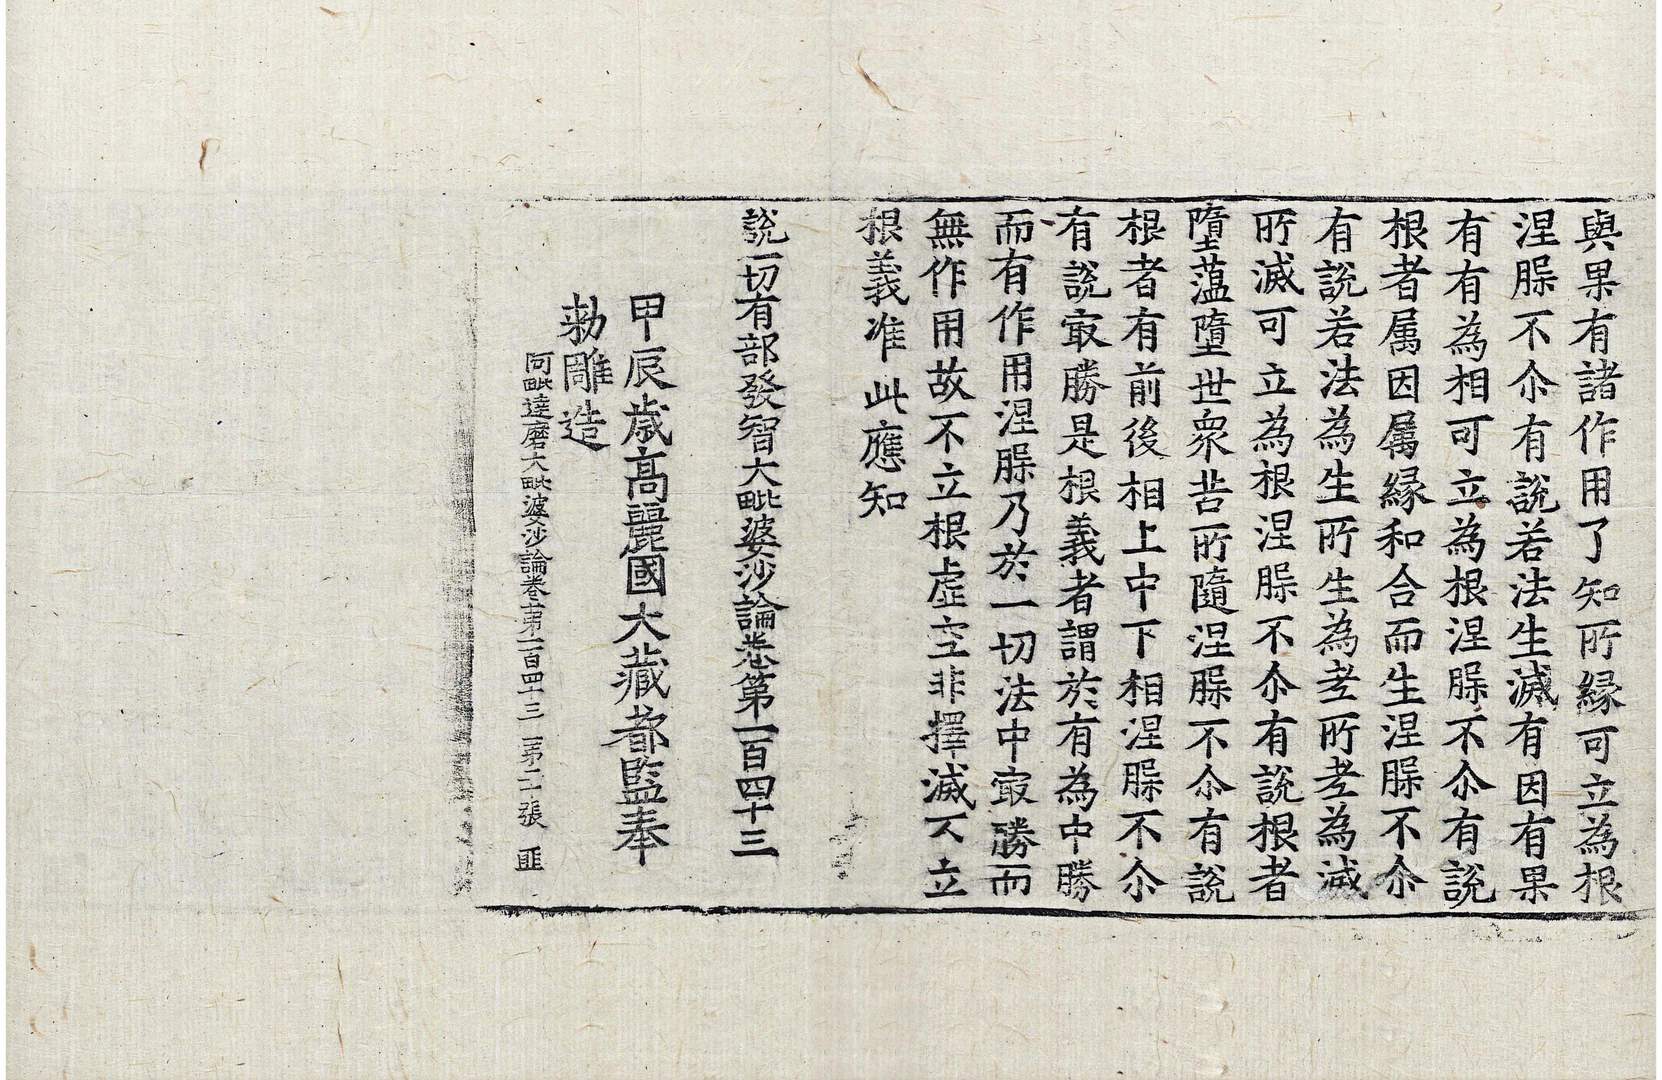 與果有諸作用了知所緣可立為根
涅槃不尒有說若法生滅有因有果
有有為相可立為根涅槃不尒有說
根者属因属緣和合而生涅槃不尒
有說若法為生所生為老所老為滅
所滅可立為根涅槃不尒有說根者
墮薀墮世眾苦所隨涅槃不尒有說
根者有前後相上中下相涅槃不尒
有說㝡勝是根義者謂於有為中勝
而有作用涅槃乃於一切法中㝡勝而
無作用故不立根虛空非擇滅不立
根義准此應知
說一切有部發智大毗婆沙論卷第一百四十三
甲辰歲高麗國大藏都監奉
勑雕造
阿毗達磨大毗婆沙論卷第一百四十三 第二十張 匪